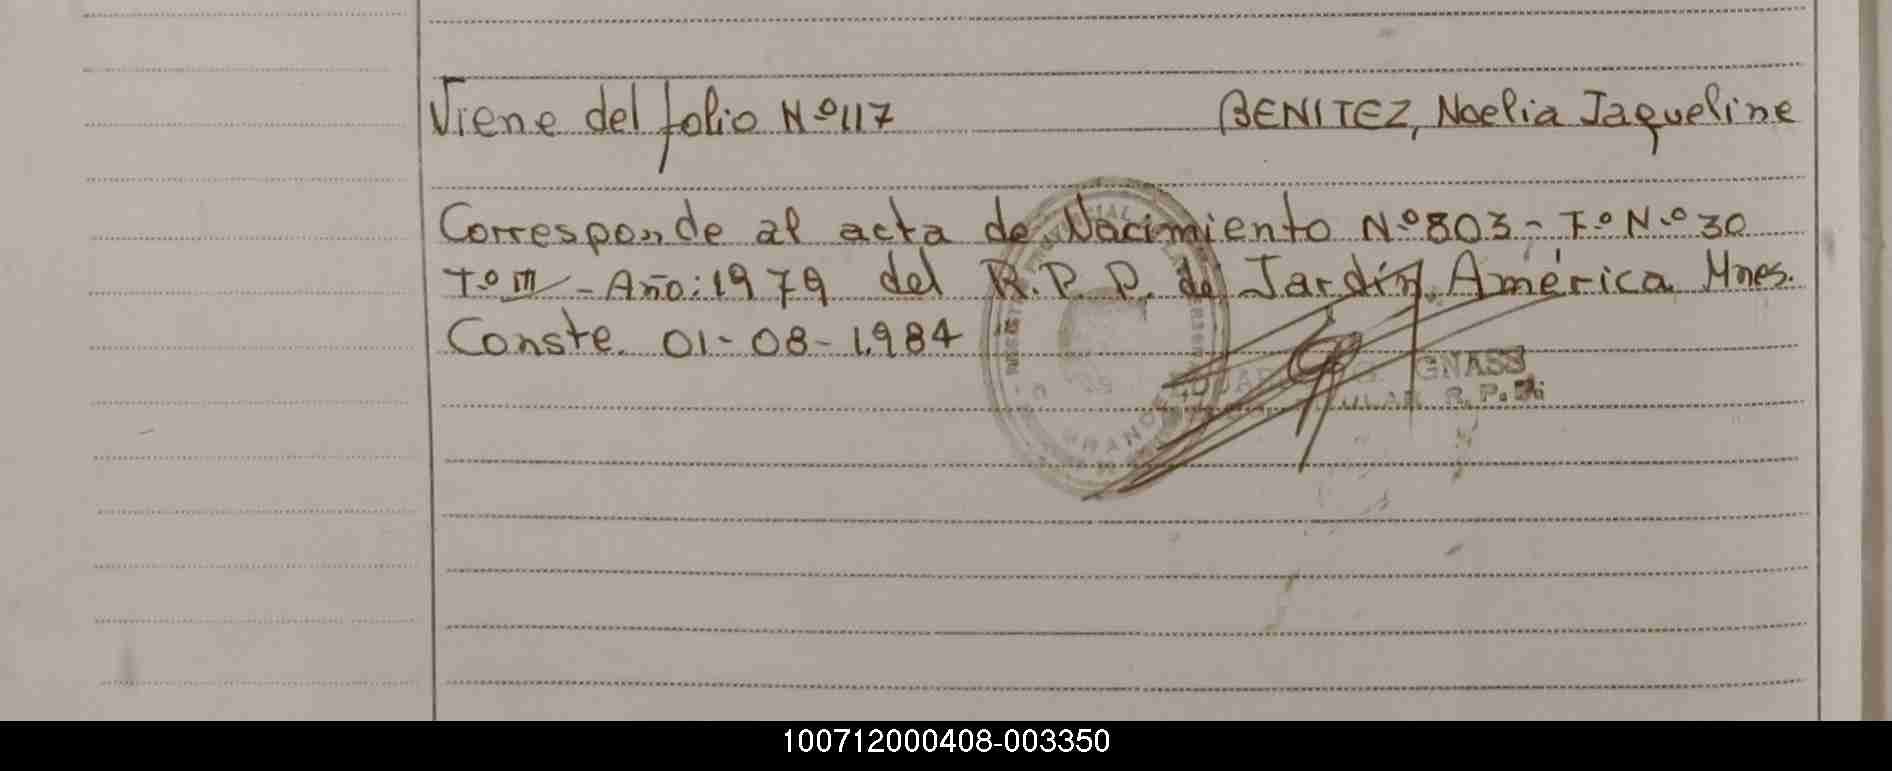 Viene del folio Nº117 BENITEZ, Noelia Jaqueline
Corresponde al acta de Nacimiento Nº803 - Fº Nº30
Tº III - Año: 1979 del R.P.P. de Jardín América Mnes.
Conste. 01-08-1.984
GNASS
R.P.
GRANDE
100712000408-003350